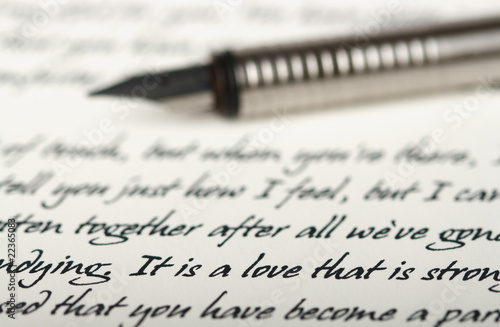 of touch, but when you're there,
tell you just how I feel, but I can
ten together after all we've gone
ndying. It is a love that is strong
ed that you have become a part